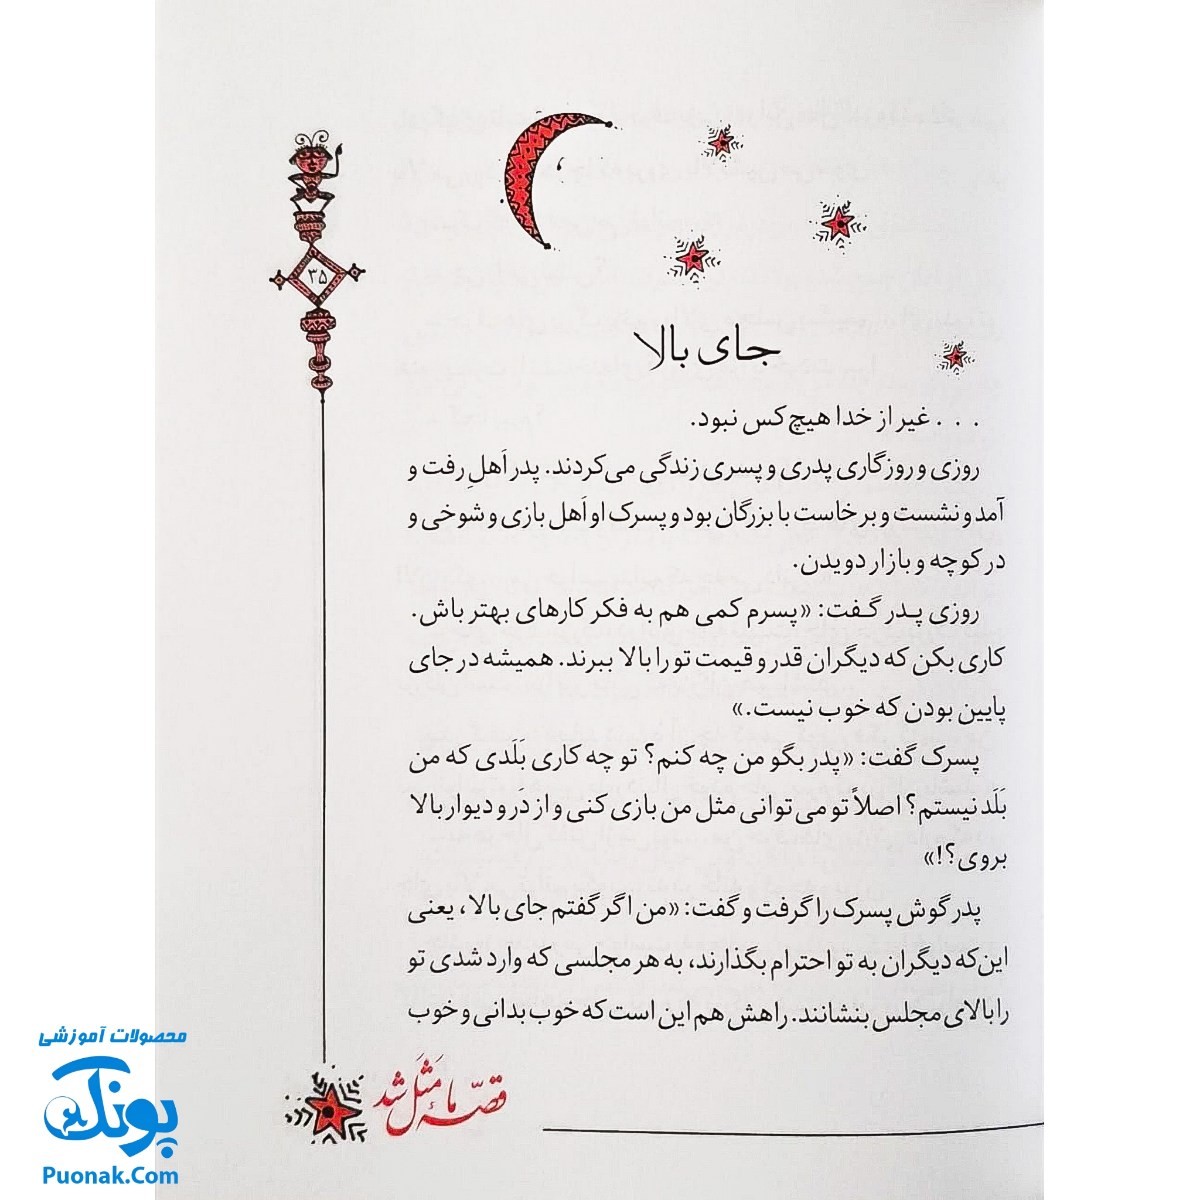 ۳۵
جای بالا
. . . غیر از خدا هیچ‌کس نبود.
روزی و روزگاری پدری و پسری زندگی می‌کردند. پدر اَهلِ رفت و
آمد و نشست و برخاست با بزرگان بود و پسرک او اَهل بازی و شوخی و
در کوچه و بازار دویدن.
روزی پدر گفت: «پسرم کمی هم به فکر کارهای بهتر باش.
کاری بکن که دیگران قدر و قیمت تو را بالا ببرند. همیشه در جای
پایین بودن که خوب نیست.»
پسرک گفت: «پدر بگو من چه کنم؟ تو چه کاری بَلَدی که من
بَلَد نیستم؟ اصلاً تو می‌توانی مثل من بازی کنی و از دَر و دیوار بالا
بروی؟!»
پدر گوش پسرک را گرفت و گفت: «من اگر گفتم جای بالا، یعنی
این‌که دیگران به تو احترام بگذارند، به هر مجلسی که وارد شدی تو
را بالای مجلس بنشانند. راهش هم این است که خوب بدانی و خوب
قصّهٔ ما مَثَل شد
محصولات آموزشی
پونک
Puonak.Com